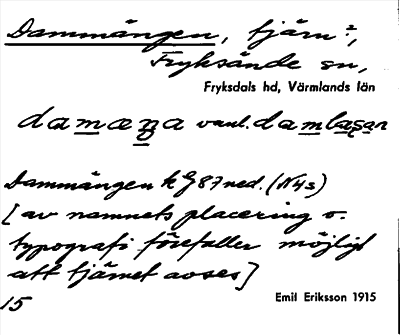 Dammängen, tjärn?,
Fryksände sn,
Fryksdals hd, Värmlands län
damæŋa vanl. damlaʂan
Dammängen k G 87 ned. (N4s)
[av namnets placering o.
typografi förefaller möjligt
att tjärnet avses]
15 Emil Eriksson 1915